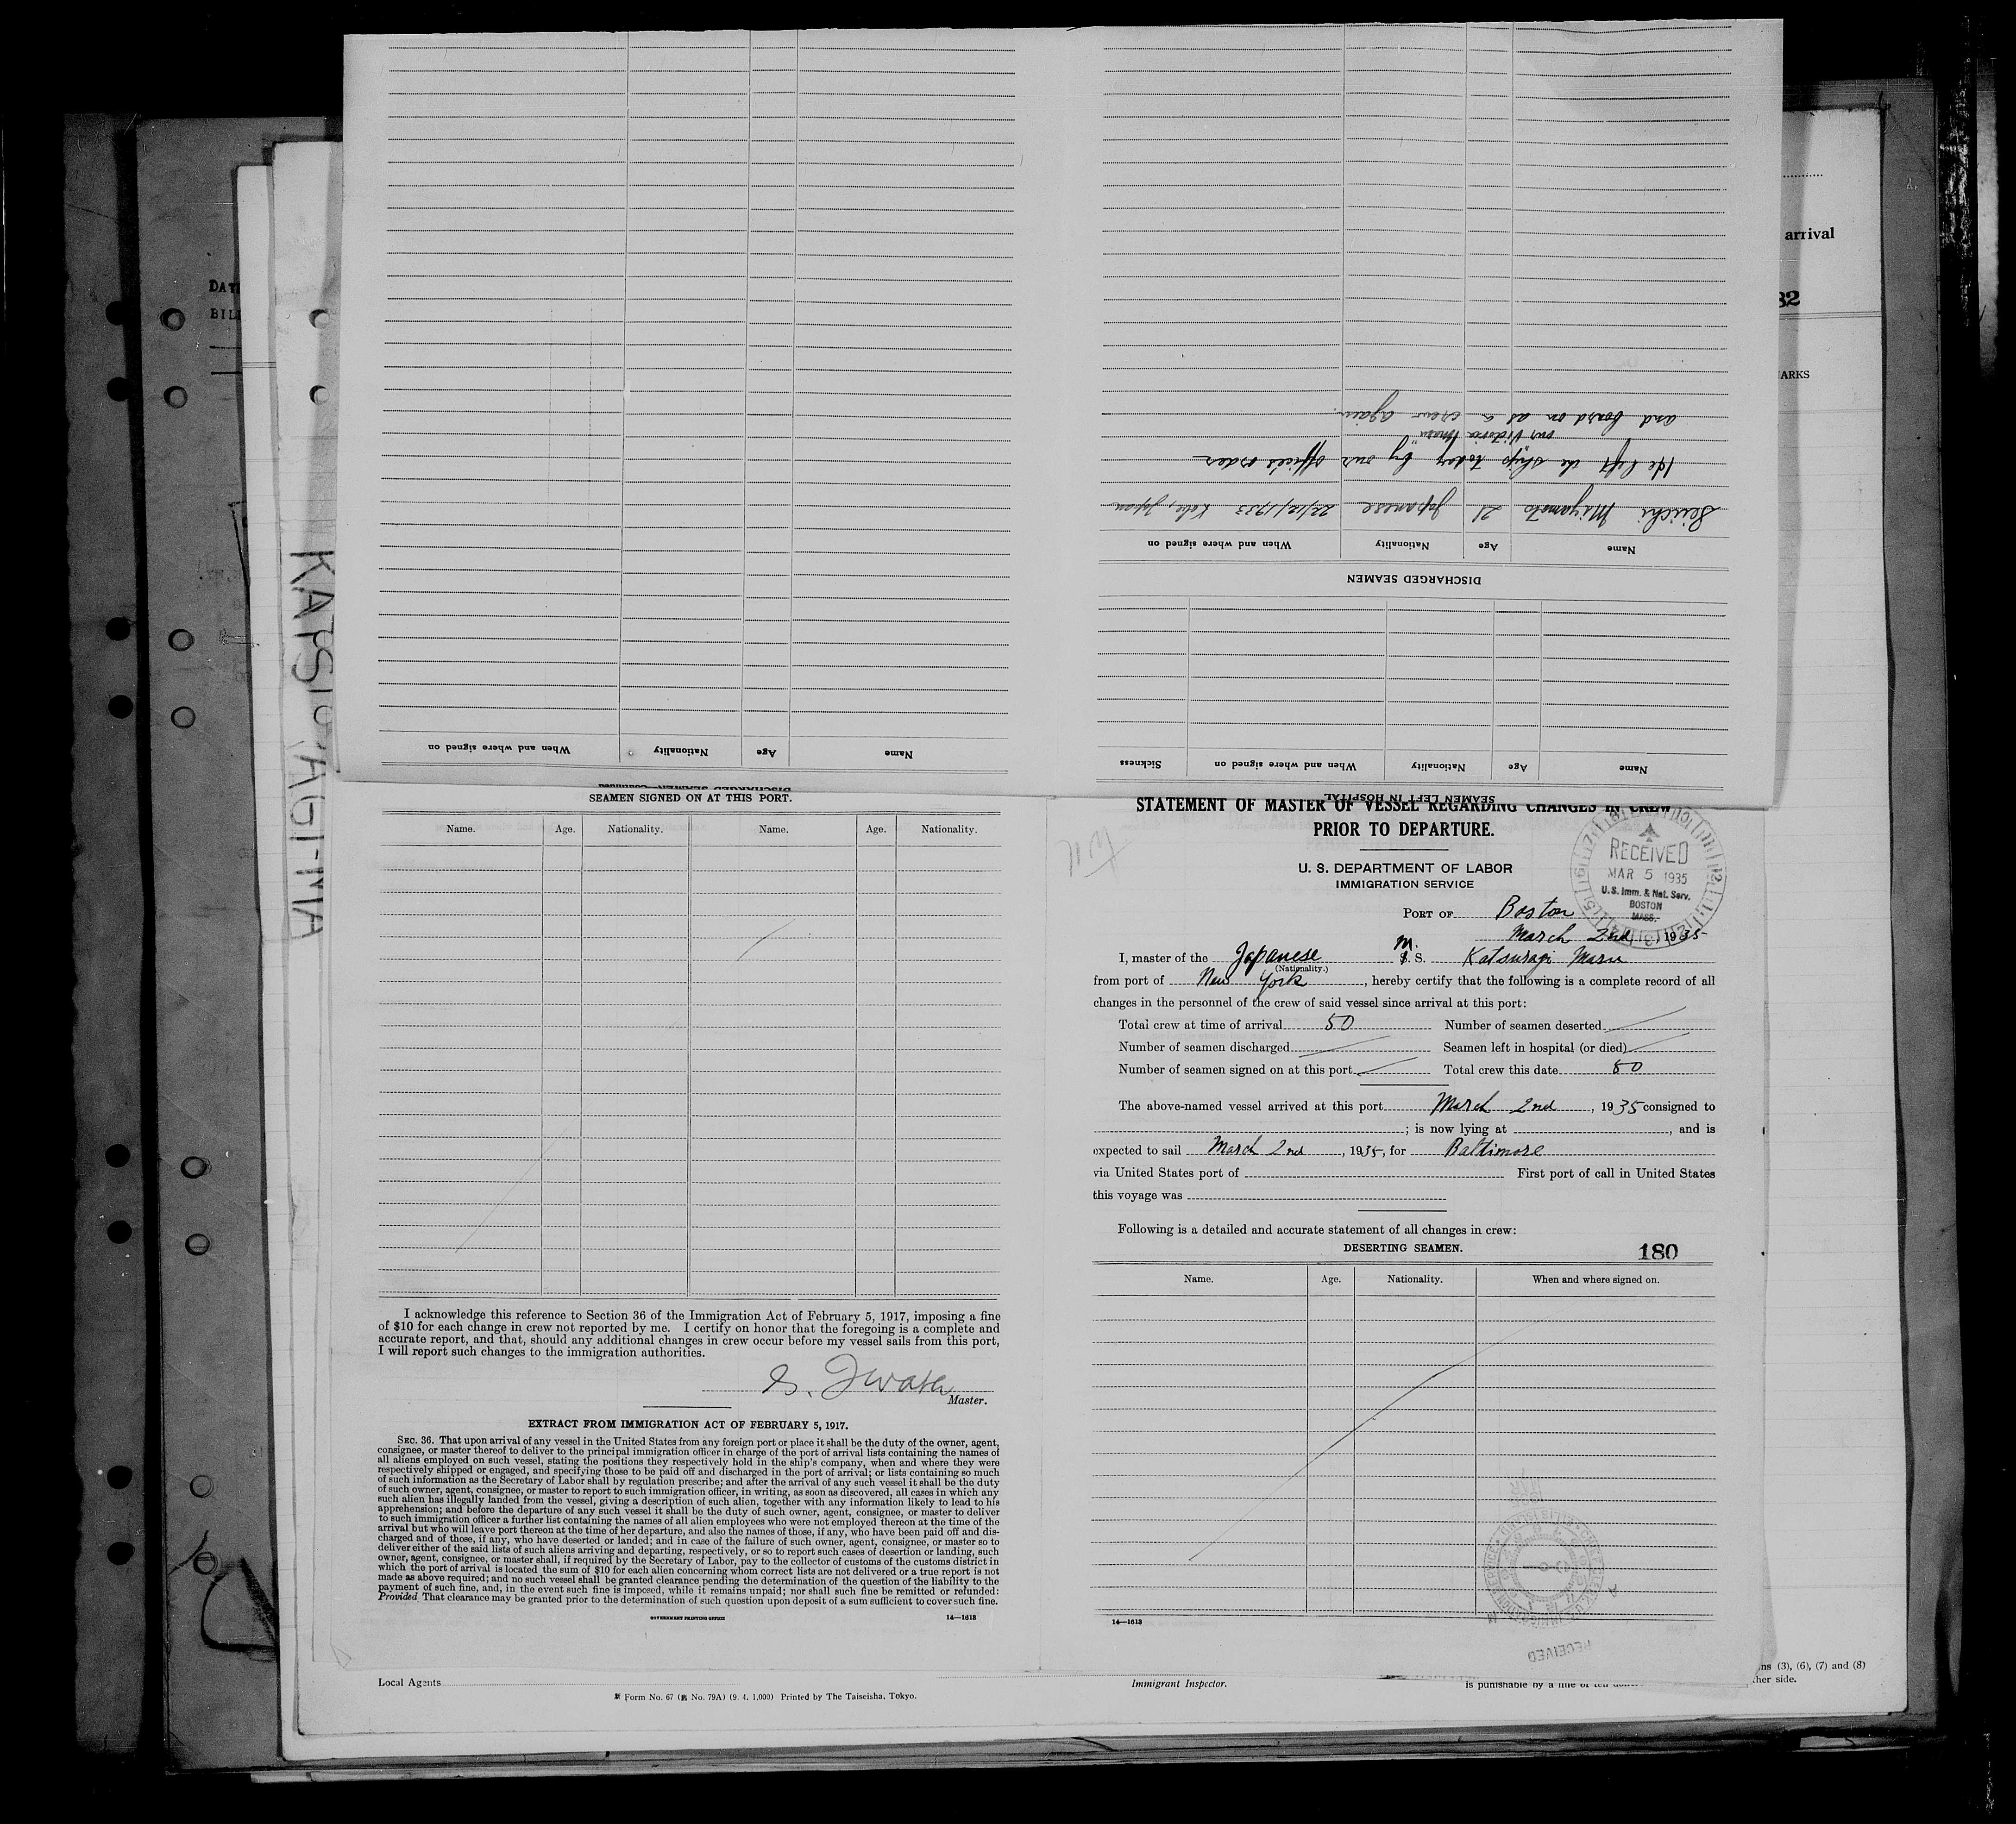 DISCHARGED SEAMEN—CONTINUED
Name Age Nationality When and where signed on
SEAMEN LEFT IN HOSPITAL
Name Age Nationality When and where signed on Sickness
DISCHARGED SEAMEN
Name Age Nationality When and where signed on
Seiichi Miyamoto 21 Japanese 22/12/1933 Kobe, Japan
He left the ship today by our office's order
our Victoria Maru"
and board on as a crew again.
DAT
BIL
arrival
32
ARKS
SEAMEN SIGNED ON AT THIS PORT.
Name. Age. Nationality. Name. Age. Nationality.
I acknowledge this reference to Section 36 of the Immigration Act of February 5, 1917, imposing a fine
of $10 for each change in crew not reported by me. I certify on honor that the foregoing is a complete and
accurate report, and that, should any additional changes in crew occur before my vessel sails from this port,
I will report such changes to the immigration authorities.
Master.
EXTRACT FROM IMMIGRATION ACT OF FEBRUARY 5, 1917.
SEC. 36. That upon arrival of any vessel in the United States from any foreign port or place it shall be the duty of the owner, agent,
consignee, or master thereof to deliver to the principal immigration officer in charge of the port of arrival lists containing the names of
all aliens employed on such vessel, stating the positions they respectively hold in the ship's company, when and where they were
respectively shipped or engaged, and specifying those to be paid off and discharged in the port of arrival; or lists containing so much
of such information as the Secretary of Labor shall by regulation prescribe; and after the arrival of any such vessel it shall be the duty
of such owner, agent, consignee, or master to report to such immigration officer, in writing, as soon as discovered, all cases in which any
such alien has illegally landed from the vessel, giving a description of such alien, together with any information likely to lead to his
apprehension; and before the departure of any such vessel it shall be the duty of such owner, agent, consignee, or master to deliver
to such immigration officer a further list containing the names of all alien employees who were not employed thereon at the time of the
arrival but who will leave port thereon at the time of her departure, and also the names of those, if any, who have been paid off and dis-
charged and of those, if any, who have deserted or landed; and in case of the failure of such owner, agent, consignee, or master so to
deliver either of the said lists of such aliens arriving and departing, respectively, or so to report such cases of desertion or landing, such
owner, agent, consignee, or master shall, if required by the Secretary of Labor, pay to the collector of customs of the customs district in
which the port of arrival is located the sum of $10 for each alien concerning whom correct lists are not delivered or a true report is not
made as above required; and no such vessel shall be granted clearance pending the determination of the question of the liability to the
payment of such fine, and, in the event such fine is imposed, while it remains unpaid; nor shall such fine be remitted or refunded:
Provided That clearance may be granted prior to the determination of such question upon deposit of a sum sufficient to cover such fine.
GOVERNMENT PRINTING OFFICE 14—1613
STATEMENT OF MASTER OF VESSEL REGARDING CHANGES IN CREW
PRIOR TO DEPARTURE.
U. S. DEPARTMENT OF LABOR
IMMIGRATION SERVICE
RECEIVED
MAR 5 1935
U. S. Imm. & Nat. Serv.
BOSTON
MASS.
PORT OF Boston
March 2nd, 1935
I, master of the Japanese M. S. Katsuragi Maru
(Nationality.)
from port of New York, hereby certify that the following is a complete record of all
changes in the personnel of the crew of said vessel since arrival at this port:
Total crew at time of arrival 50 Number of seamen deserted
Number of seamen discharged Seamen left in hospital (or died)
Number of seamen signed on at this port Total crew this date 50
The above-named vessel arrived at this port March 2nd, 1935 consigned to
; is now lying at , and is
expected to sail March 2nd, 1935, for Baltimore
via United States port of First port of call in United States
this voyage was
Following is a detailed and accurate statement of all changes in crew:
DESERTING SEAMEN. 180
Name. Age. Nationality. When and where signed on.
14—1613
RECEIVED
Local Agents
Form No. 67 (No. 79A) (9. 4. 1,000) Printed by The Taiseisha, Tokyo.
Immigrant Inspector.
is punishable by a fine of ten
ns (3), (6), (7) and (8)
her side.